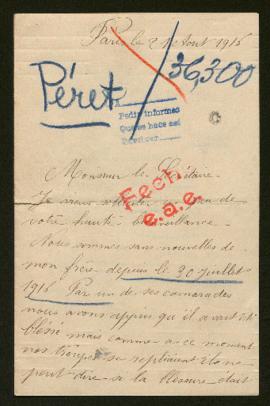 Paris le 2 Aout 1916
Péret
36,300
Pedir informes
Que se hace asi
Fech
e.a.e.
Monsieur le Secrétaire.
Je viens
votre haute bienveillance.
Nous sommes sans nouvelles de
mon frère depuis le 30 juillet
1916 Par un de ses camarades
nous avons appris qu'il avait été
blessé mais comme a ce moment
nos troupes se repliaient
peut dire si la blessure était